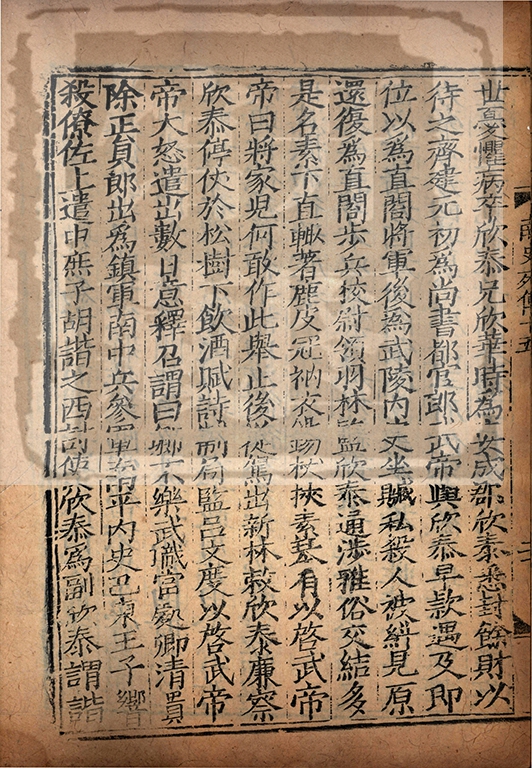 世憂懼病卒欣泰兄欣華時為安成郡欣泰悉封餘財以
待之齊建元初為尚書都官郎武帝與欣泰早款遇及即
位以為直閤將軍後為武陵內史坐贓私殺人被糾見原
還復為直閤步兵校尉領羽林監欣泰通涉雅俗交結多
是名素下直輙著鹿皮冠衲衣錫杖挾素琴有以啓武帝
帝曰將家兒何敢作此舉止後從駕出新林敕欣泰廉察
欣泰停仗於松樹下飲酒賦詩制局監呂文度以啓武帝
帝大怒遣出數日意釋召謂曰卿不樂武職當處卿清貫
除正員郎出為鎮軍南中兵參軍南平內史巴東王子響
殺僚佐上遣中庶子胡諧之西討使欣泰為副欣泰謂諧